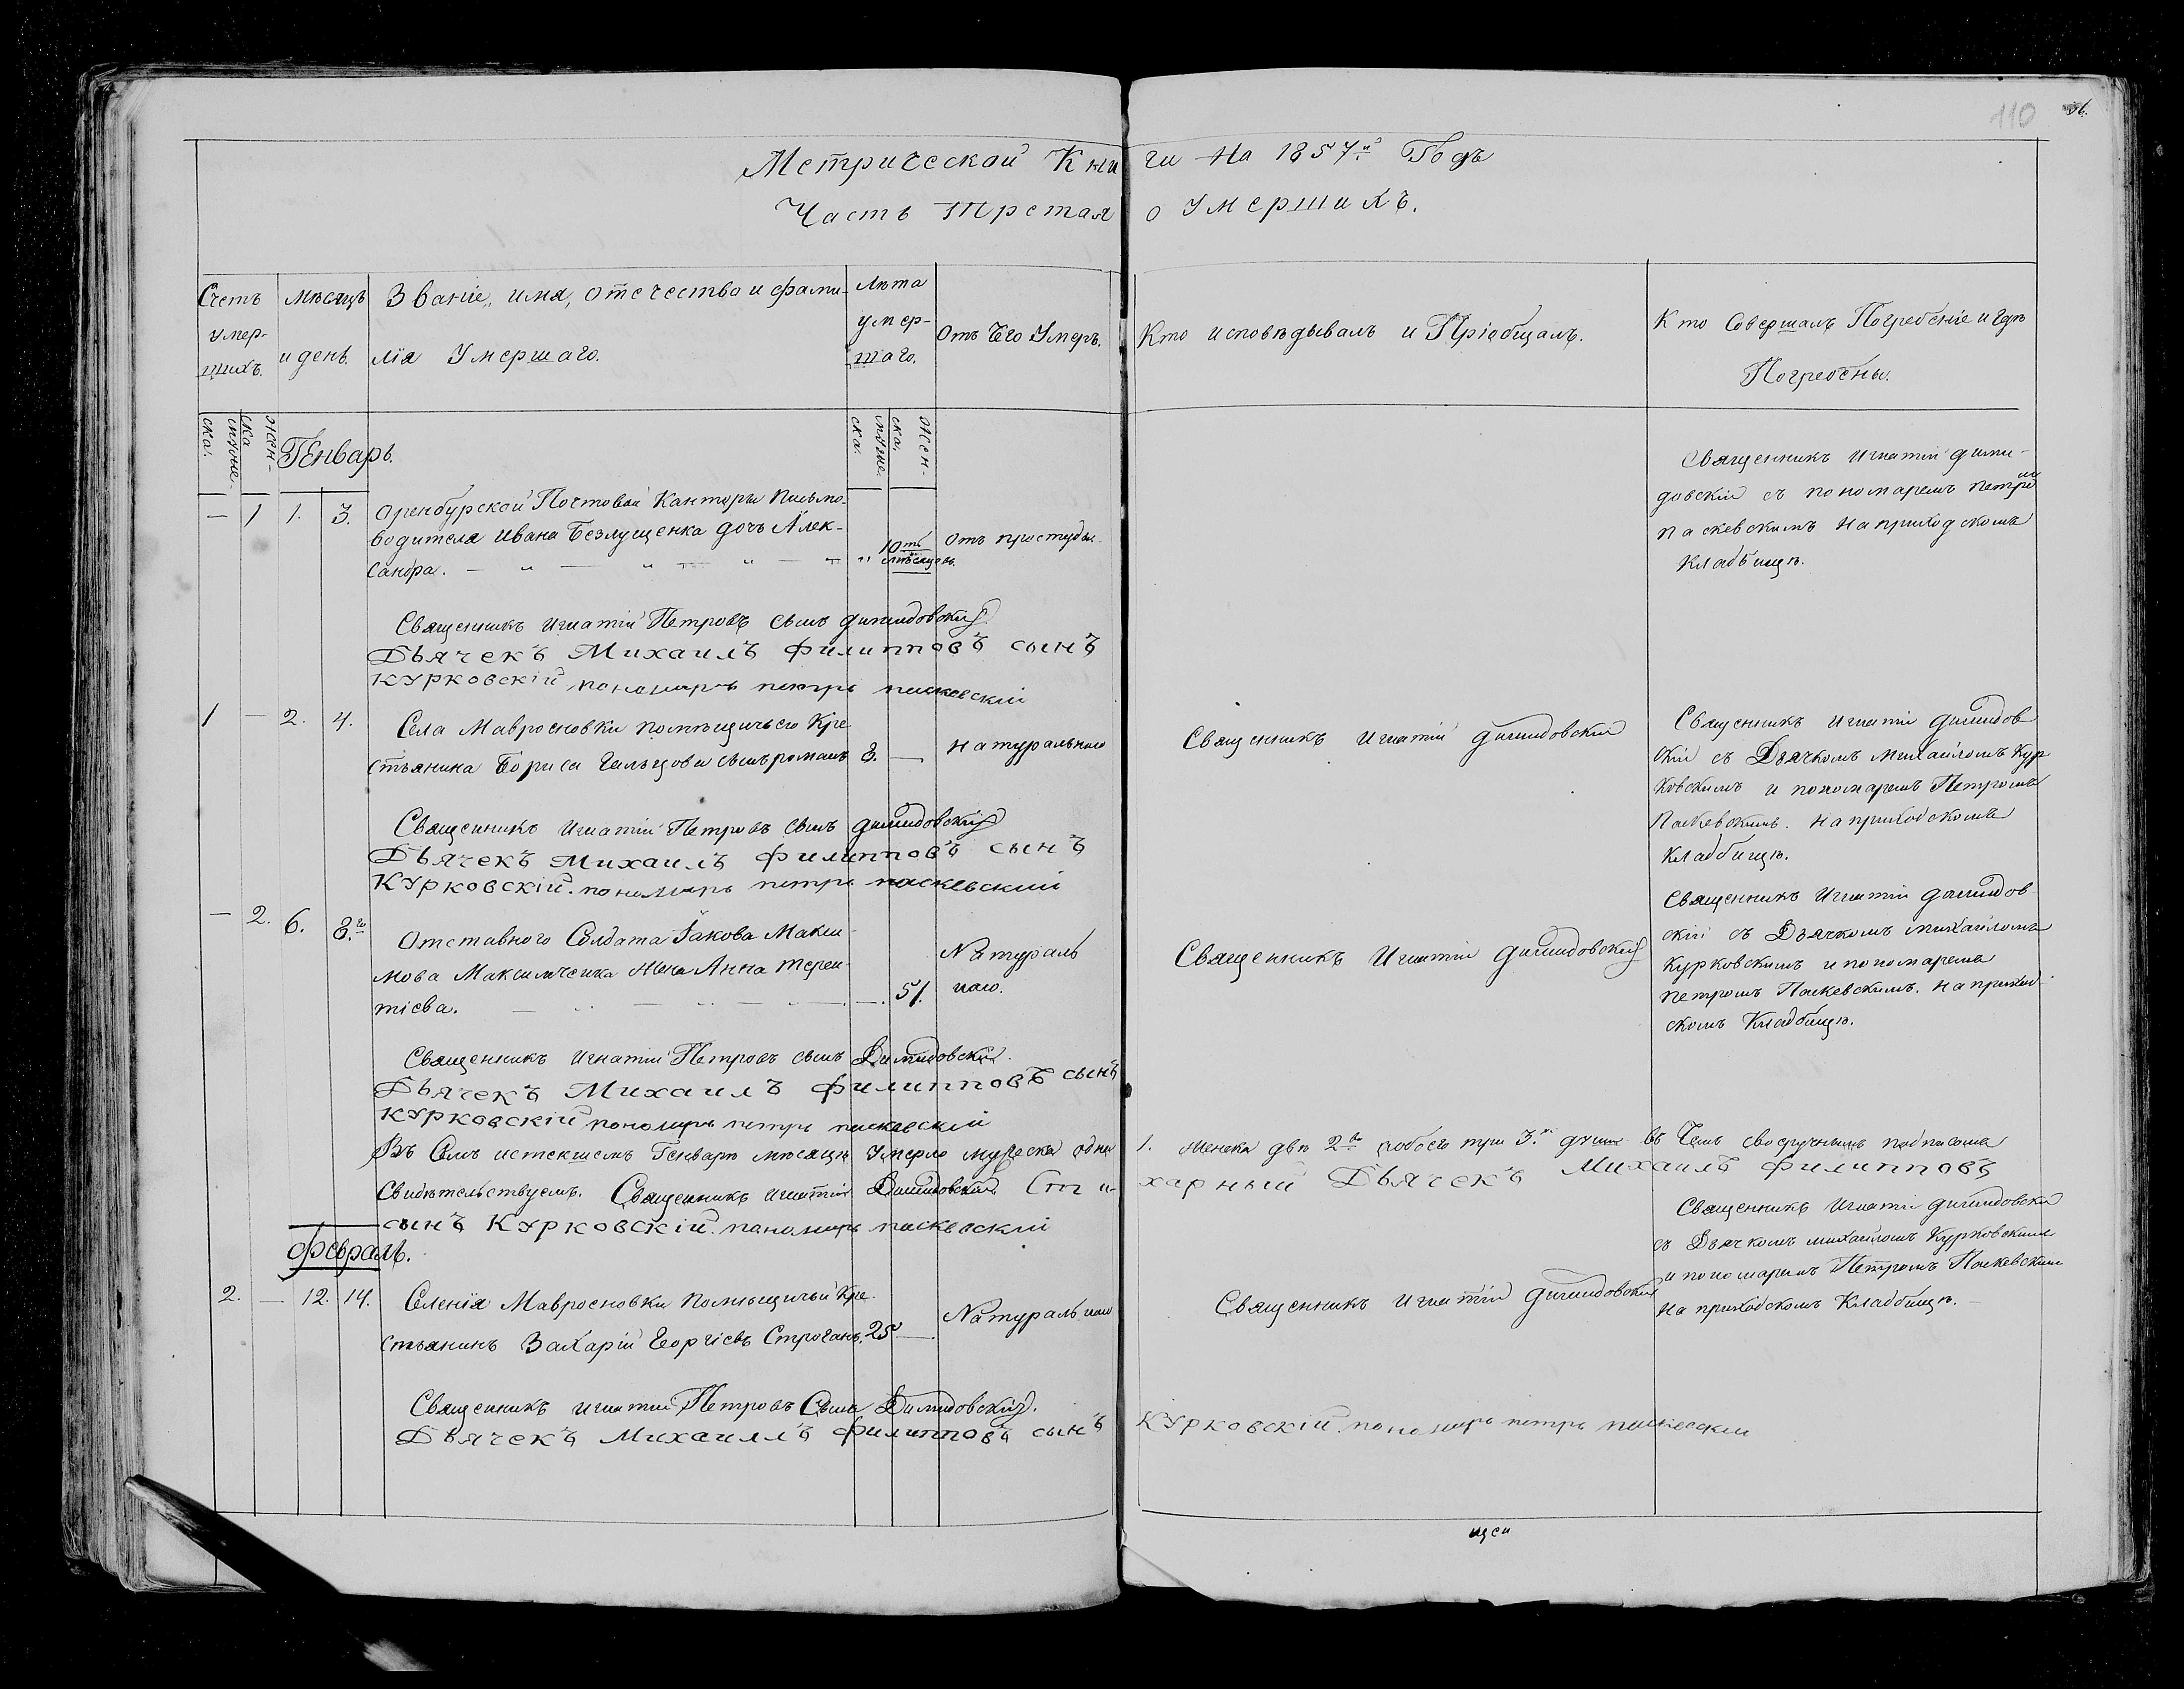 110
Метрической Книги На 1857й Годъ
Часть Третая о Умершихъ.
Счетъ умерших.
мѣсяцъ и день.
Званіе, имя, отечество и фами-
лія Умершаго.
Лѣта умер-
шаго.
Отъ Чего Умеръ.
Кто исповѣдывалъ и Пріобщалъ.
Кто Совершалъ Погребеніе и гдѣ
Погребены.
мужес-
ка.
жен-
ска
мужес-
ка.
жен-
ска.
Генварь.
— 1 1. 3. Оренбурской Почтовой Канторы Письмо-
водителя Ивана Безлущенка дочь Алек-
сандра.
10ти
мѣсяцовъ.
Отъ простуды.
Священникъ Игнатій дими-
довскій съ пономаремъ петром
паскевскимъ на приходскомъ
Кладбищѣ.
Священникъ Игнатій Петровъ сынъ димидовскій
Дьячекъ Михаилъ Филипповъ сынъ
Курковскій пономарь петръ паскевскій
1 — 2. 4. Села Мавросновки помѣщичьего Кре-
стьянина Бориса сынъ романъ 8. — натуральною
Священникъ Игнатій димидовскій
Священникъ Игнатій димидов
скій съ Дьячкомъ Михаиломъ Кур
ковскимъ и пономаремъ Петромъ
Паскевскимъ. на приходскомъ
Кладбищѣ.
Священникъ Игнатій Петровъ сынъ димидовскій
Дьячекъ Михаилъ Филипповъ сынъ
Курковскій. пономарь петръ паскевский
— 2. 6. 8.го Отставного Солдата Іакова Макси-
мова Максимченка Жена Анна Терен-
тіева. —. 51. Натураль
ною.
Священникъ Игнатій димидовскій
Священникъ Игнатій димидов
скій съ Дьячкомъ михаиломъ
Курковскимъ и пономаремъ
петромъ Паскевскимъ. на приход-
скомъ Кладбищѣ.
Священникъ Игнатій Петровъ сынъ Димидовскій.
Дьячекъ Михаилъ Филипповъ сынъ
Курковскій пономарь петръ паскевскій
Въ Семъ истекшемъ Генварѣ мѣсяцѣ Умерло мужеска одна 1. женска двѣ 2ве обоего три 3. души въ Чемъ своеручнымъ подписомъ
Свидѣтельствуемъ. Священникъ Игнатій Димидовскій. Сти-
харный Дьячекъ Михаилъ Филипповъ
сынъ Курковскій. пономарь паскевский
Февраль.
2. — 12. 14. Селенія Мавросновки Помѣщичьи Кре-
стьянинъ Захарій Георгіевъ Строганъ. 25 —. Натуральною
Священникъ Игнатій димидовскій
Священникъ Игнатій димидовскій
съ Дьячкомъ михаиломъ Курковскимъ
и пономаремъ Петромъ Паскевскимъ
на приходскомъ Кладбищѣ.
Священникъ Игнатій Петровъ Сынъ Димидовскій.
Дьячекъ Михаилъ Филипповъ сынъ Курковскій. пономарь петръ паскевский